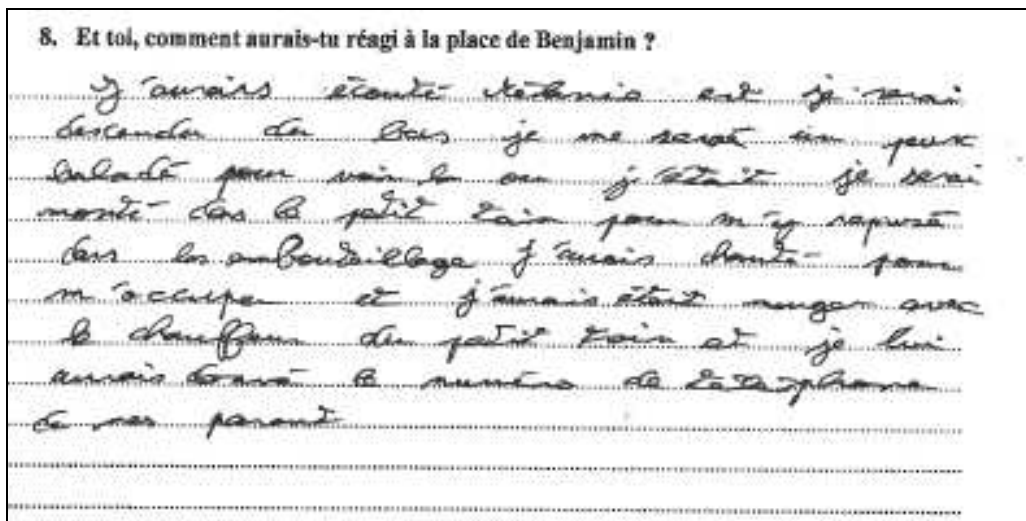 8. Et toi, comment aurais-tu réagi à la place de Benjamin ?
J'aurais écouté est je serai
descendu du bus je me serai un peux
baladé pour voir la ou j'était je serai
monté dans le petit train pour m'y reposé
dans les embouteillage j'aurais chanté pour
m'occuper et j'aurais était manger avec
le chauffeur du petit train et je lui
aurais donné le numéro de téléphone
de mes parent